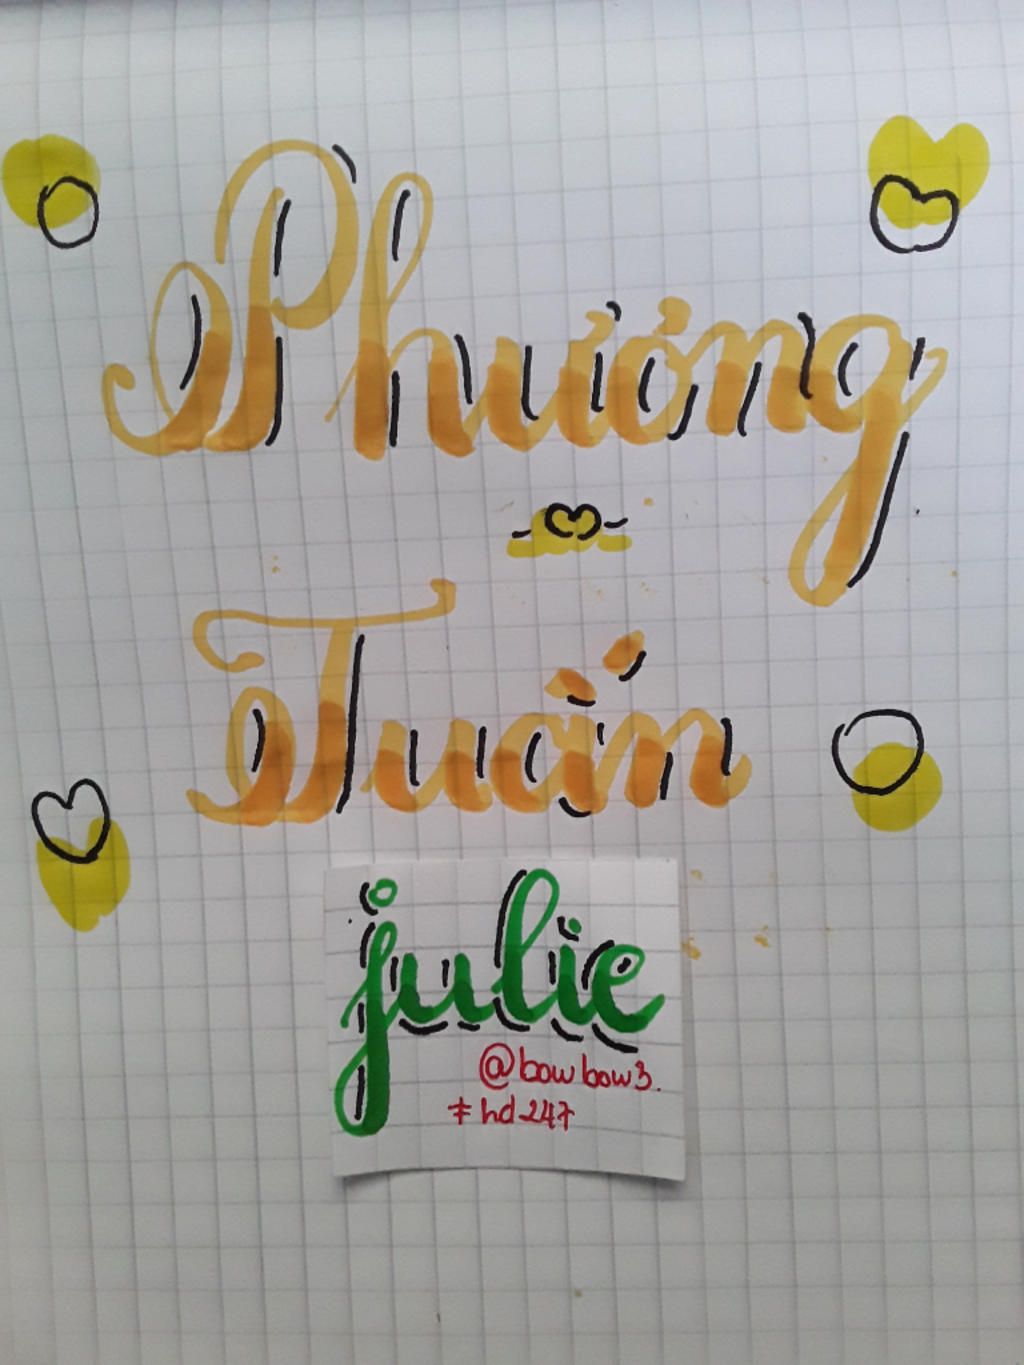 Phương
Tuấn
julie
@bowbow3.
#hd247